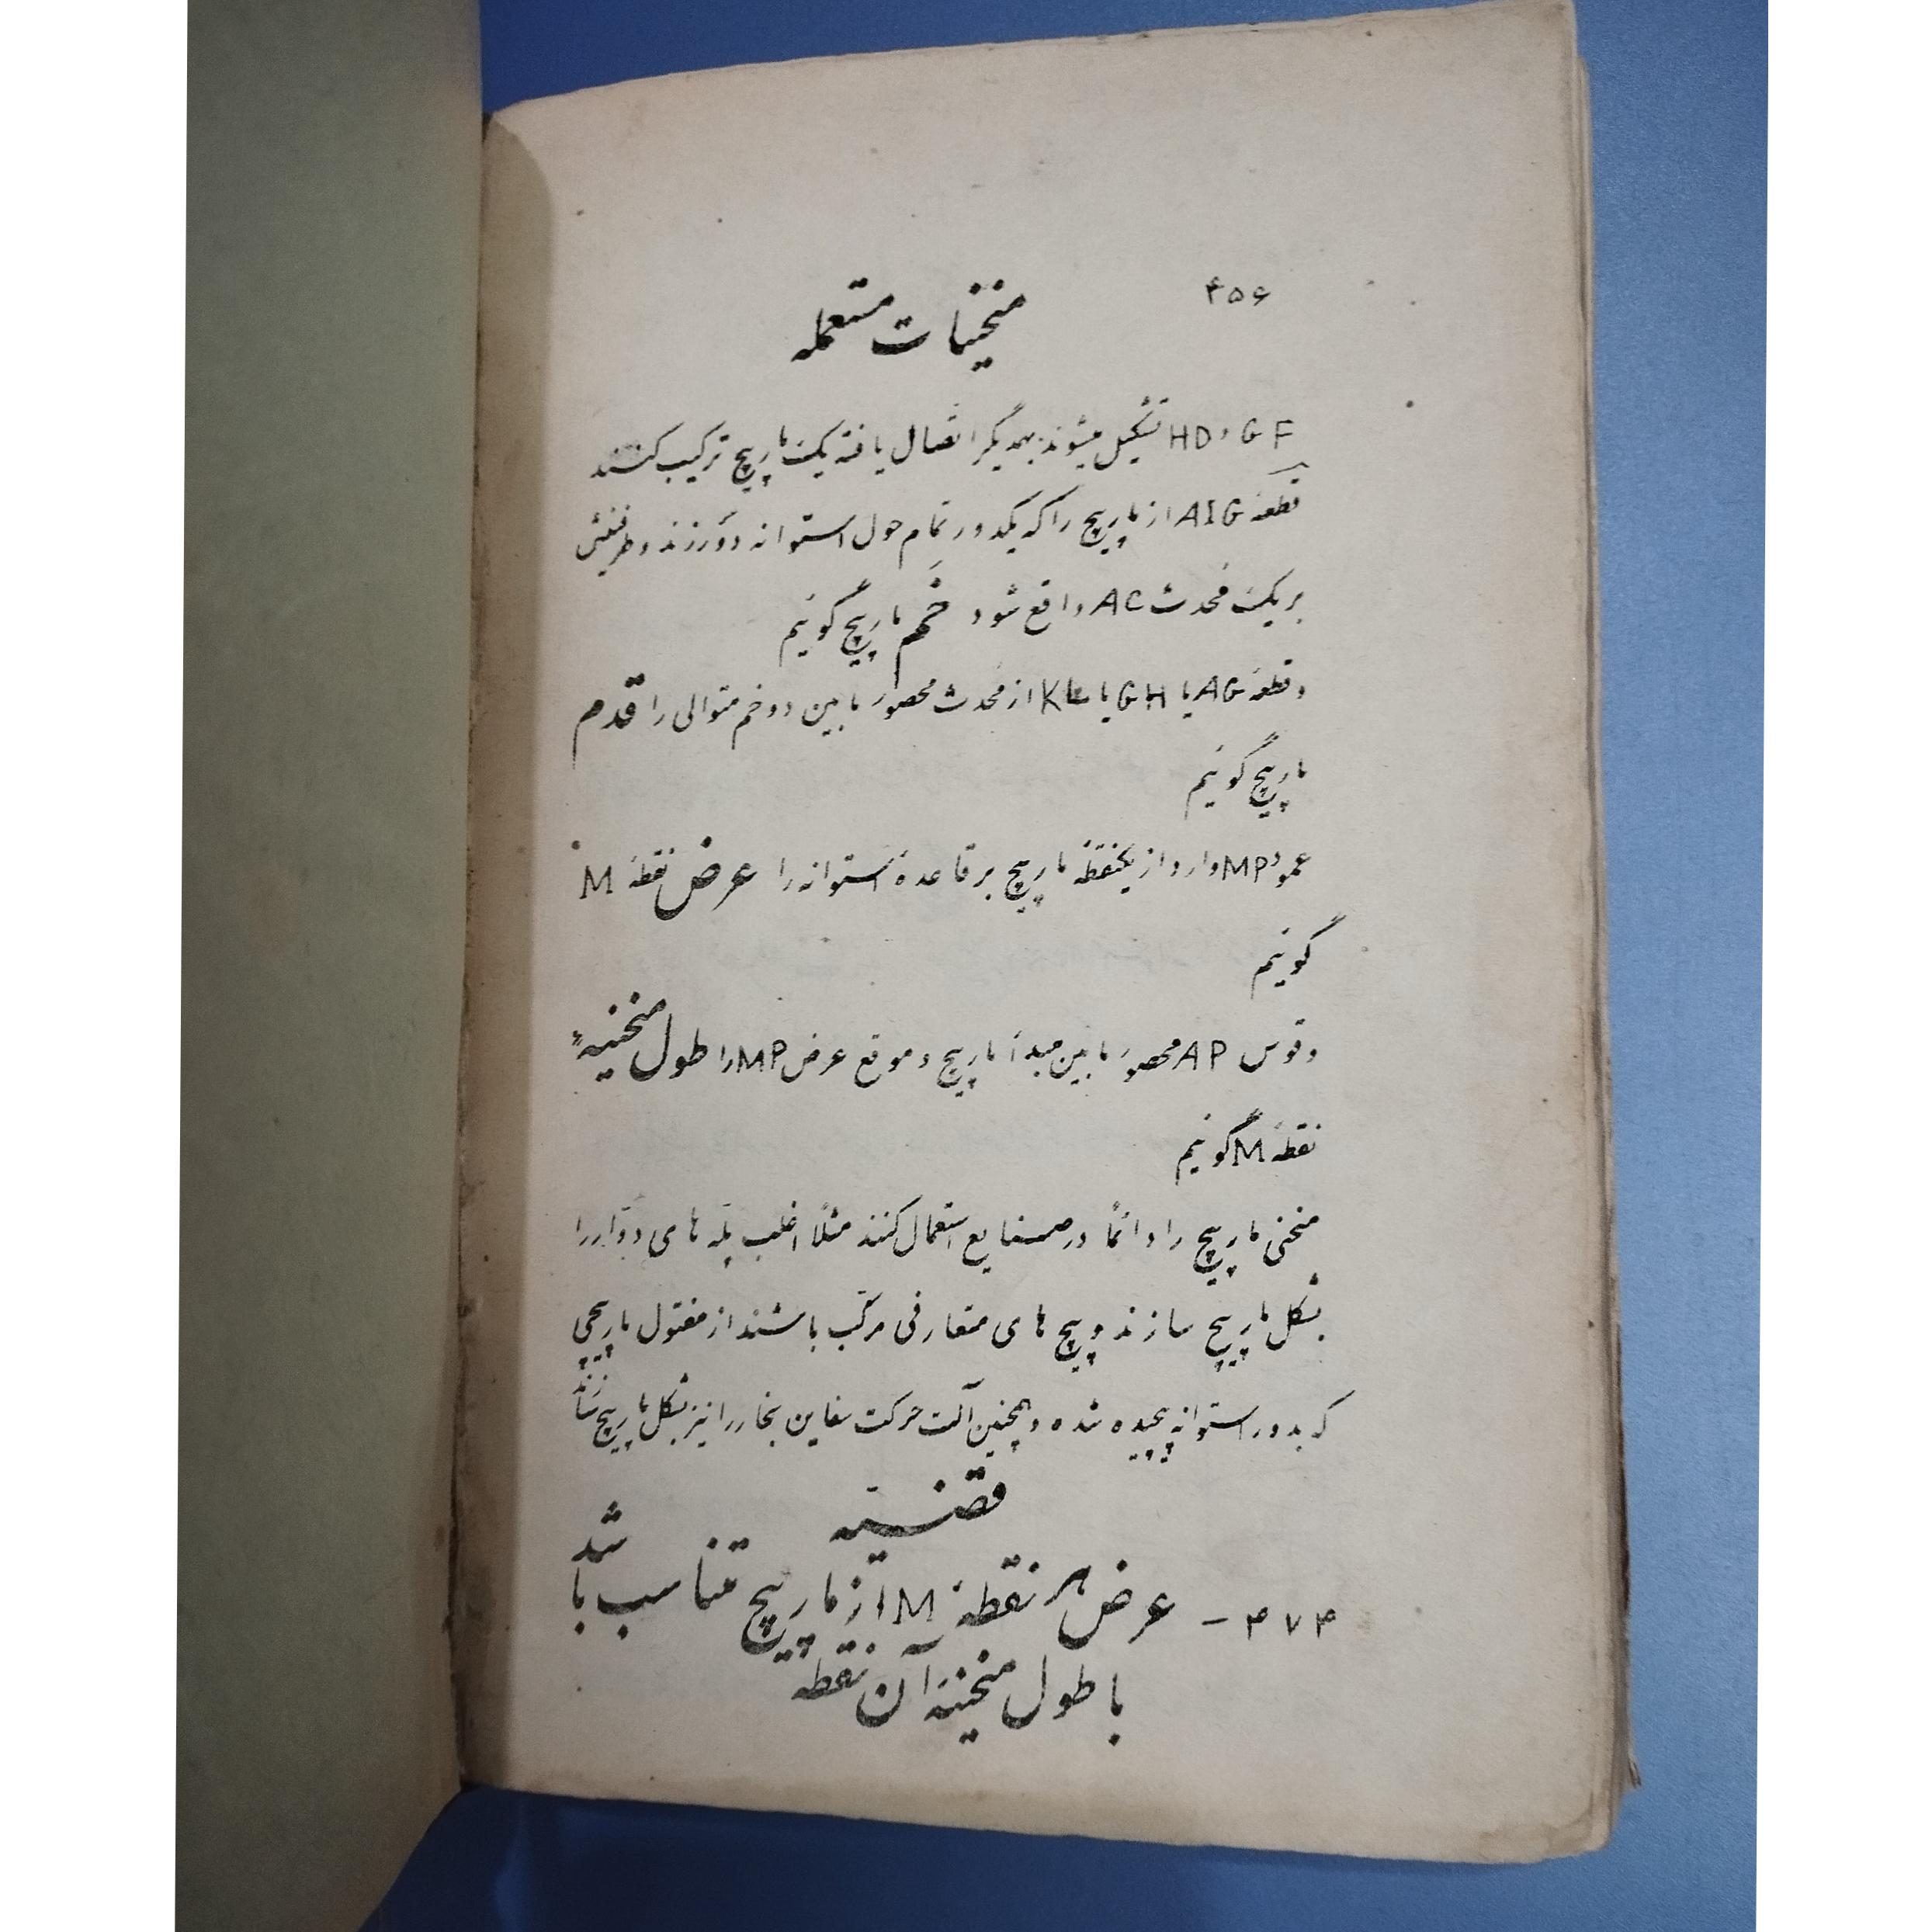 ۴۵۶
منحنیات مستعمله
GF و HD تشکیل میشوند بهمدیگر اتصال یافته یک مارپیچ ترکیب کنند
قطعهٔ AIG از مارپیچ را که یکدور تمام حول استوانه دَوَر زند و طرفینش
بر یک مُحدث AC واقع شود خَم مارپیچ گوئیم
و قطعهٔ AG یا GH یا KL از مُحدث محصور ما بین دو خم متوالی را قدم
مارپیچ گوئیم
عمود MP وارد از یکنقطهٔ مارپیچ بر قاعدهٔ استوانه را عرض نقطهٔ M
گوئیم
و قوس AP محصور ما بین مبدأ مارپیچ و موقع عرض MP را طول منحنیهٔ
نقطهٔ M گوئیم
منحنی مارپیچ را دائمًا در صنایع استعمال کنند مثلًا اغلب پلّه های دوّار را
بشکل مارپیچ سازند و پیچ های متعارفی مرکّب باشند از مفتول مارپیچی
که بدور استوانه پیچیده شده و همچنین آلت حرکت سفاین بخار را نیز بشکل مارپیچ سازند
قضیّه
۴۷۴ – عرض هر نقطهٔ M از مارپیچ متناسب باشد
با طول منحنیهٔ آن نقطه